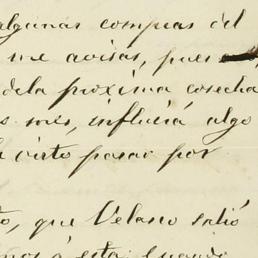 algunas compras del
me avisas, pues
de la proxima cosecha
mes, influirá algo
visto pasar por
que Velasco salió
á esta, cuando